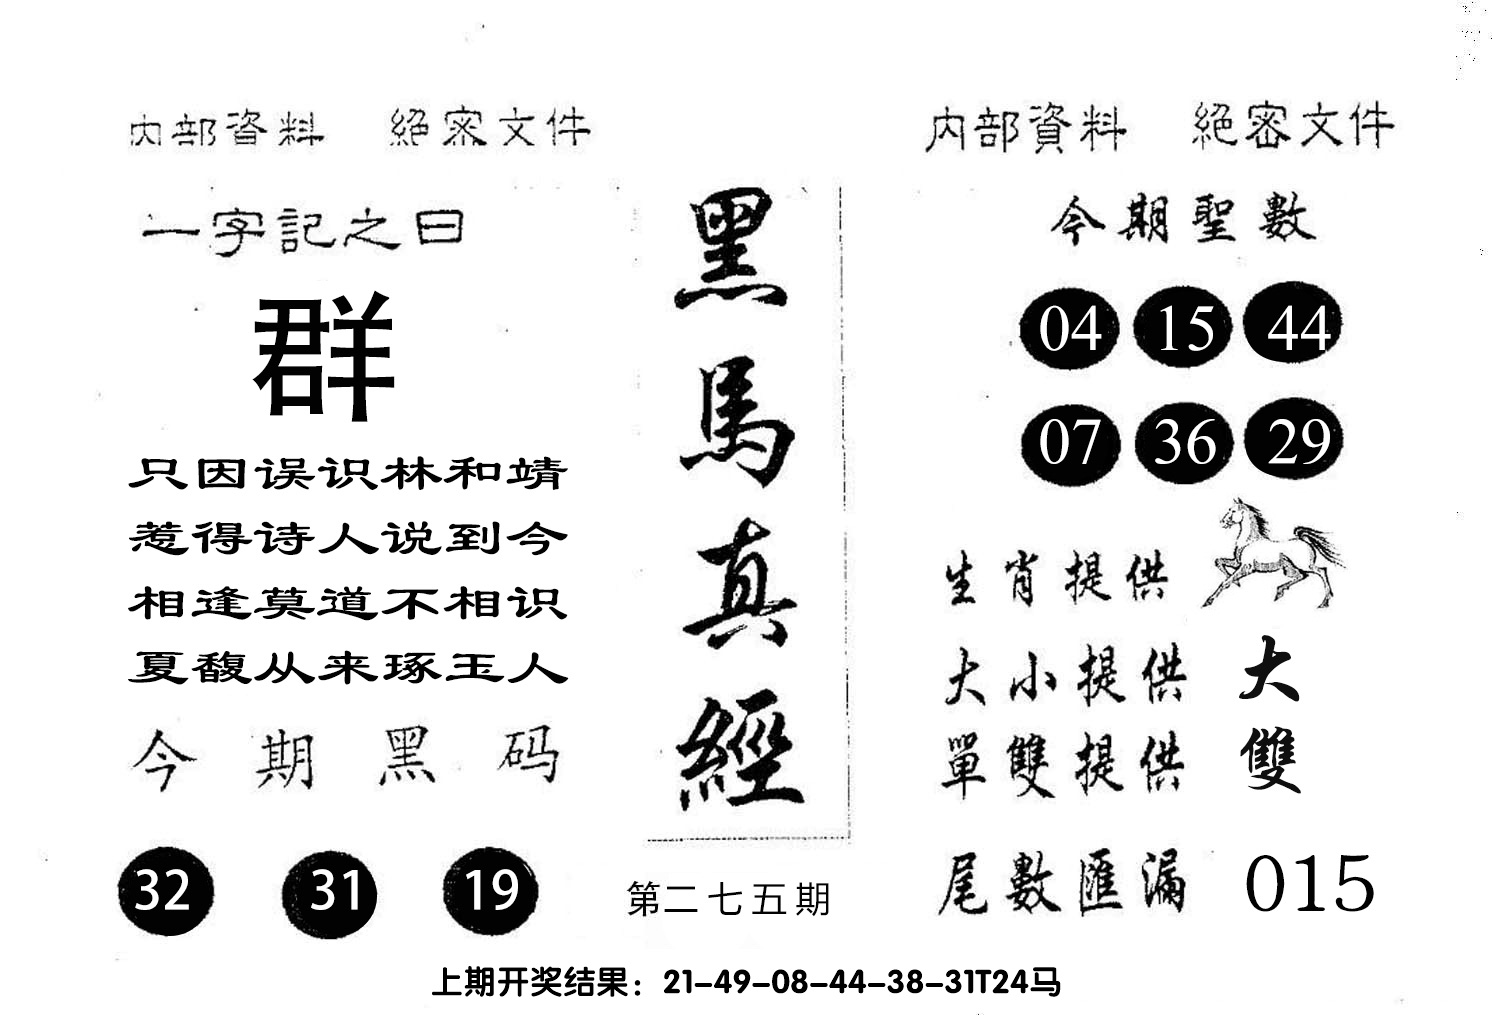 内部資料 絕密文件
一字記之曰
群
只因误识林和靖
惹得诗人说到今
相逢莫道不相识
夏馥从来琢玉人
今期黑码
32 31 19
黑馬真經
第二七五期
内部資料 絕密文件
今期聖數
04 15 44
07 36 29
生肖提供
大小提供 大
單雙提供 雙
尾數匯漏 015
上期开奖结果：21-49-08-44-38-31T24马